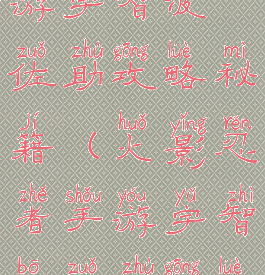 游 手 智 波
zuǒ zhù gōng lüè mì
佐 助 攻 略 秘
jí huǒ yǐng rěn
籍 （ 火 影 忍
zhě shǒu yóu yǔ zhì
者 手 游 宇 智
bō zuǒ zhù gōng lüè